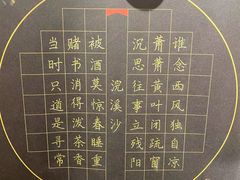 谁念西风独自凉
萧萧黄叶闭疏窗
沉思往事立残阳
浣溪沙
被酒莫惊春睡重
赌书消得泼茶香
当时只道是寻常